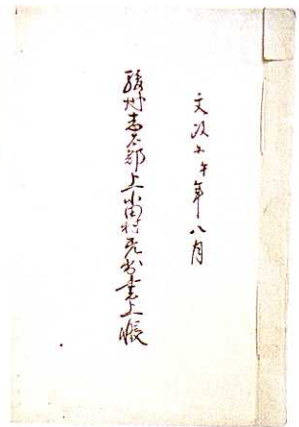 文政五午年八月
駿州志太郡上小田村差出書上帳